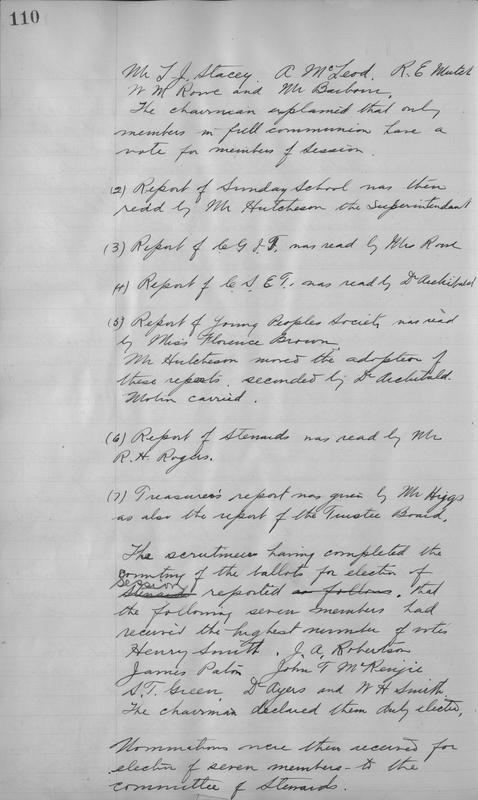 110
Mr L. J. Stacey. A McLeod. R. E Mutch
W M Rowe and Mr Barbour.
The chairman explained that only
members in full communion have a
vote for members of Session.
(2) Report of Sunday School was then
read by Mr Hutcheson the Superintendant
(3) Report of C G I T. was read by Mrs Rowe
(4) Report of C. S. E T. was read by Dr Archibald
(5) Report of Young Peoples Society was read
by Miss Florence Brown.
Mr Hutcheson moved the adoption of
these reports. seconded by Dr Archibald.
Motion carried.
(6) Report of Stewards was read by Mr
R. H. Rogers.
(7) Treasurer's report was given by Mr Higgs
as also the report of the Trustee Board.
The scrutineers having completed the
counting of the ballots for election of
Session
Stewards reported as follows. that
the following seven members had
received the highest number of votes
Henry Smith. J. A. Robertson
James Paton John T McKenzie
S. T. Green, Dr Ayers and W H Smith
The chairman declared them duly elected.
Nominations were then received for
election of seven members to the
committee of Stewards.